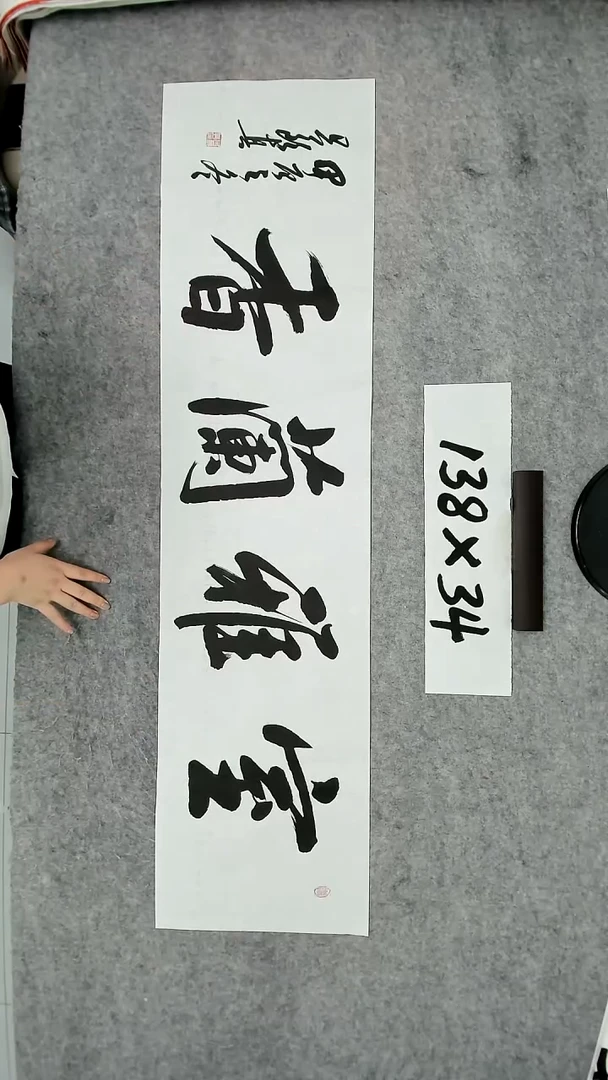 室雅蘭香
138×34